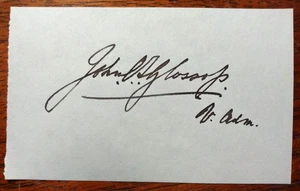 John C T Glossop.
V. Adm.